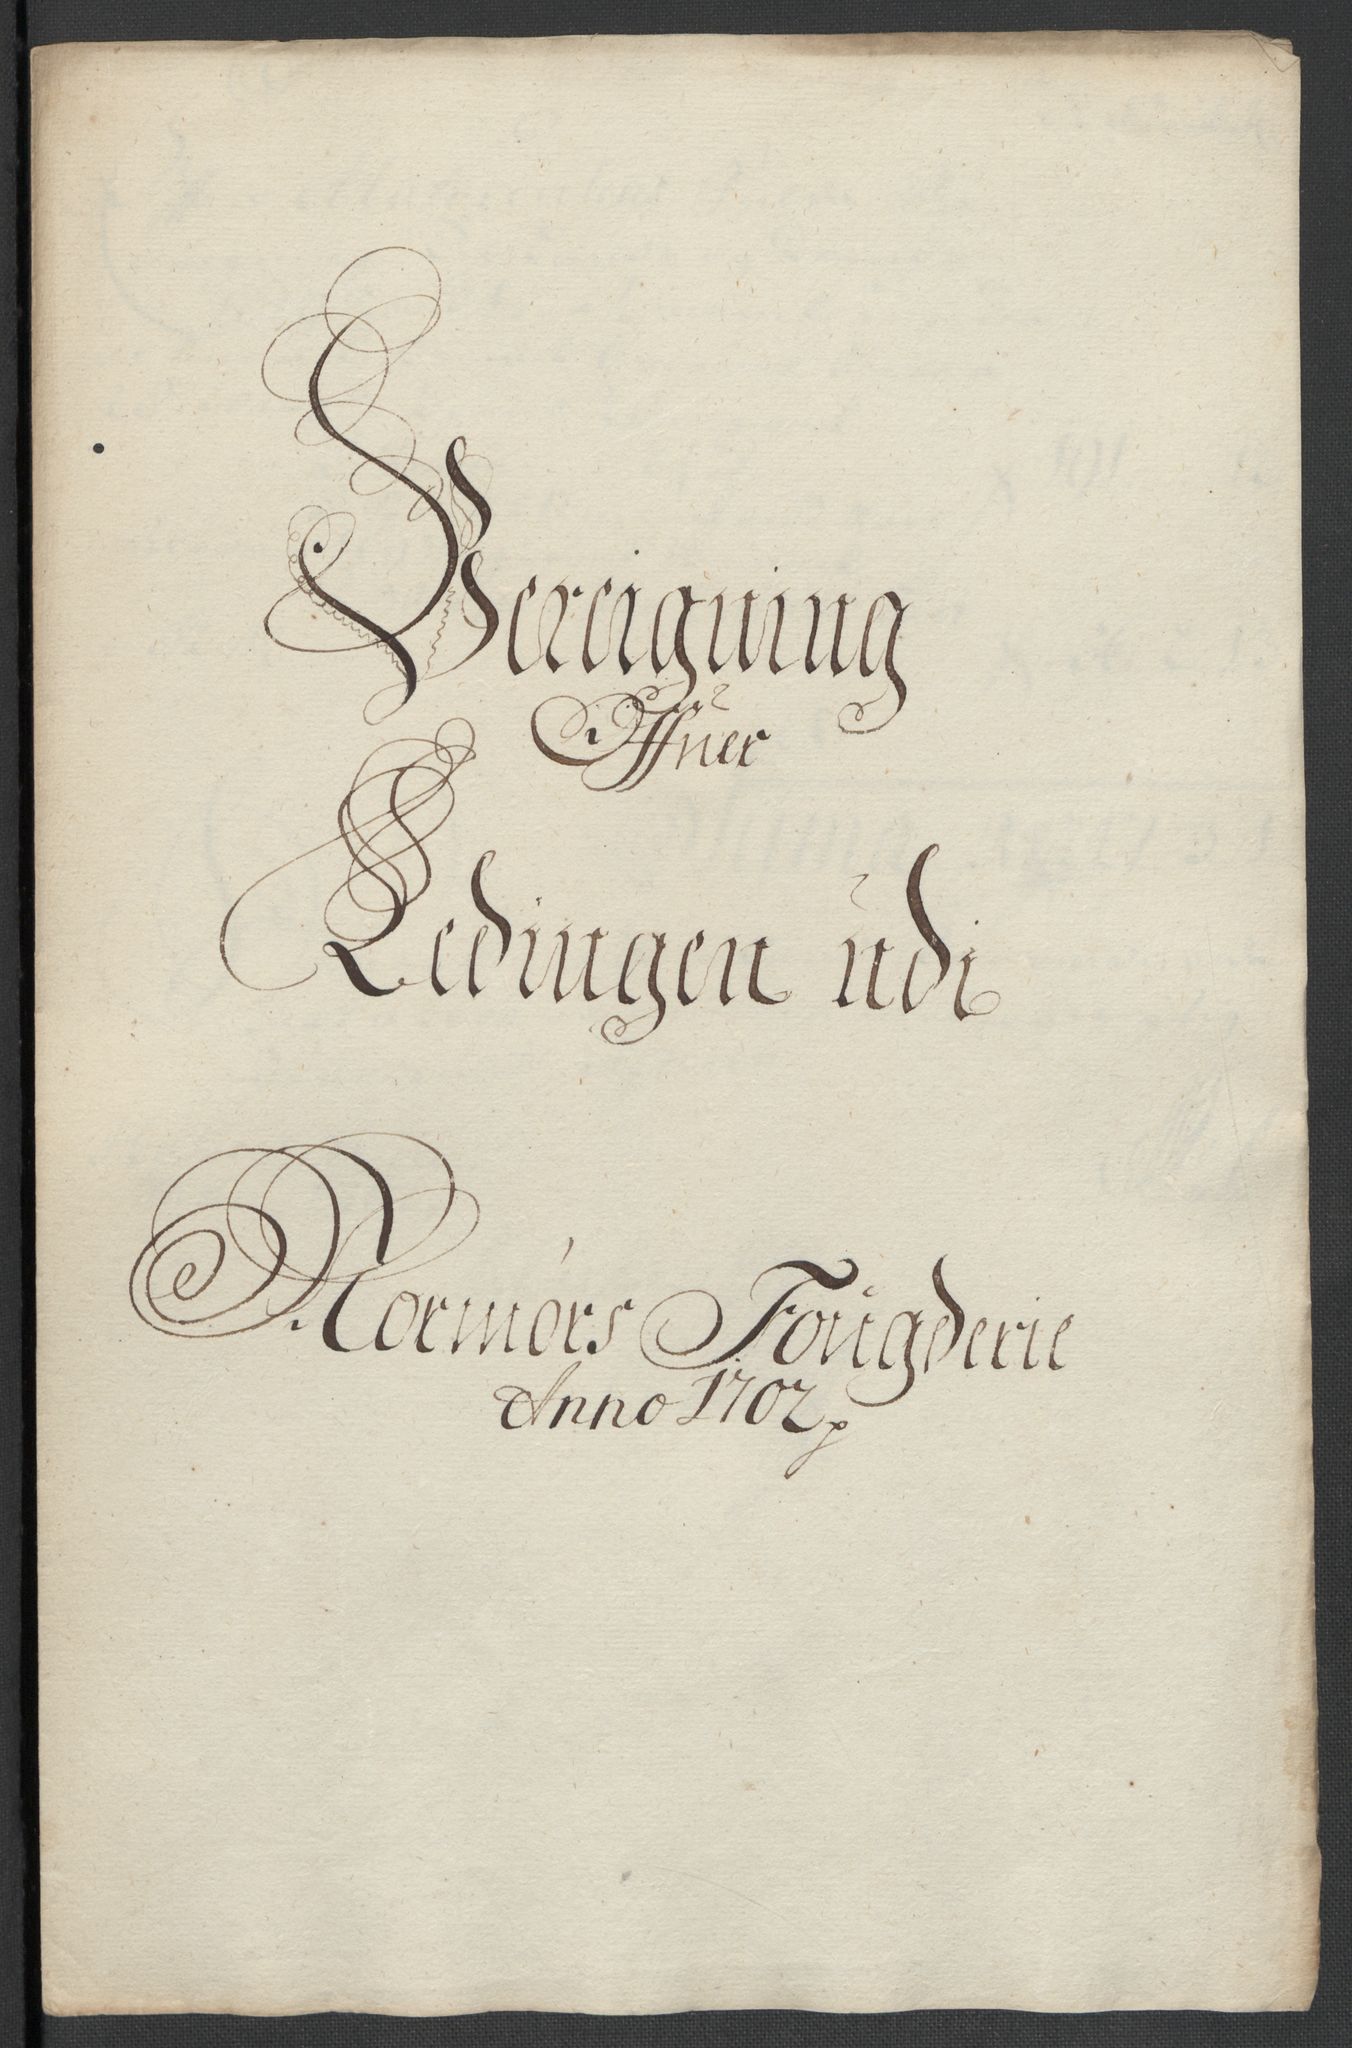 Bereigning
Offuer
Ledingen udi
Normørs Fougderie
Anno 1702